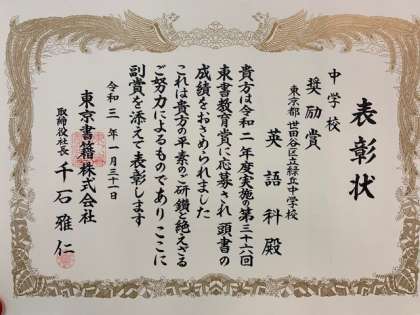 表彰状
中学校
奨励賞
東京都 世田谷区立緑丘中学校
英語科殿
貴方は令和二年度実施の第三十六回
東書教育賞に応募され頭書の
成績をおさめられました
これは貴方の平素のご研鑽と絶えざる
ご努力によるものでありここに
副賞を添えて表彰します
令和三年一月三十一日
東京書籍株式会社
取締役社長 千石雅仁